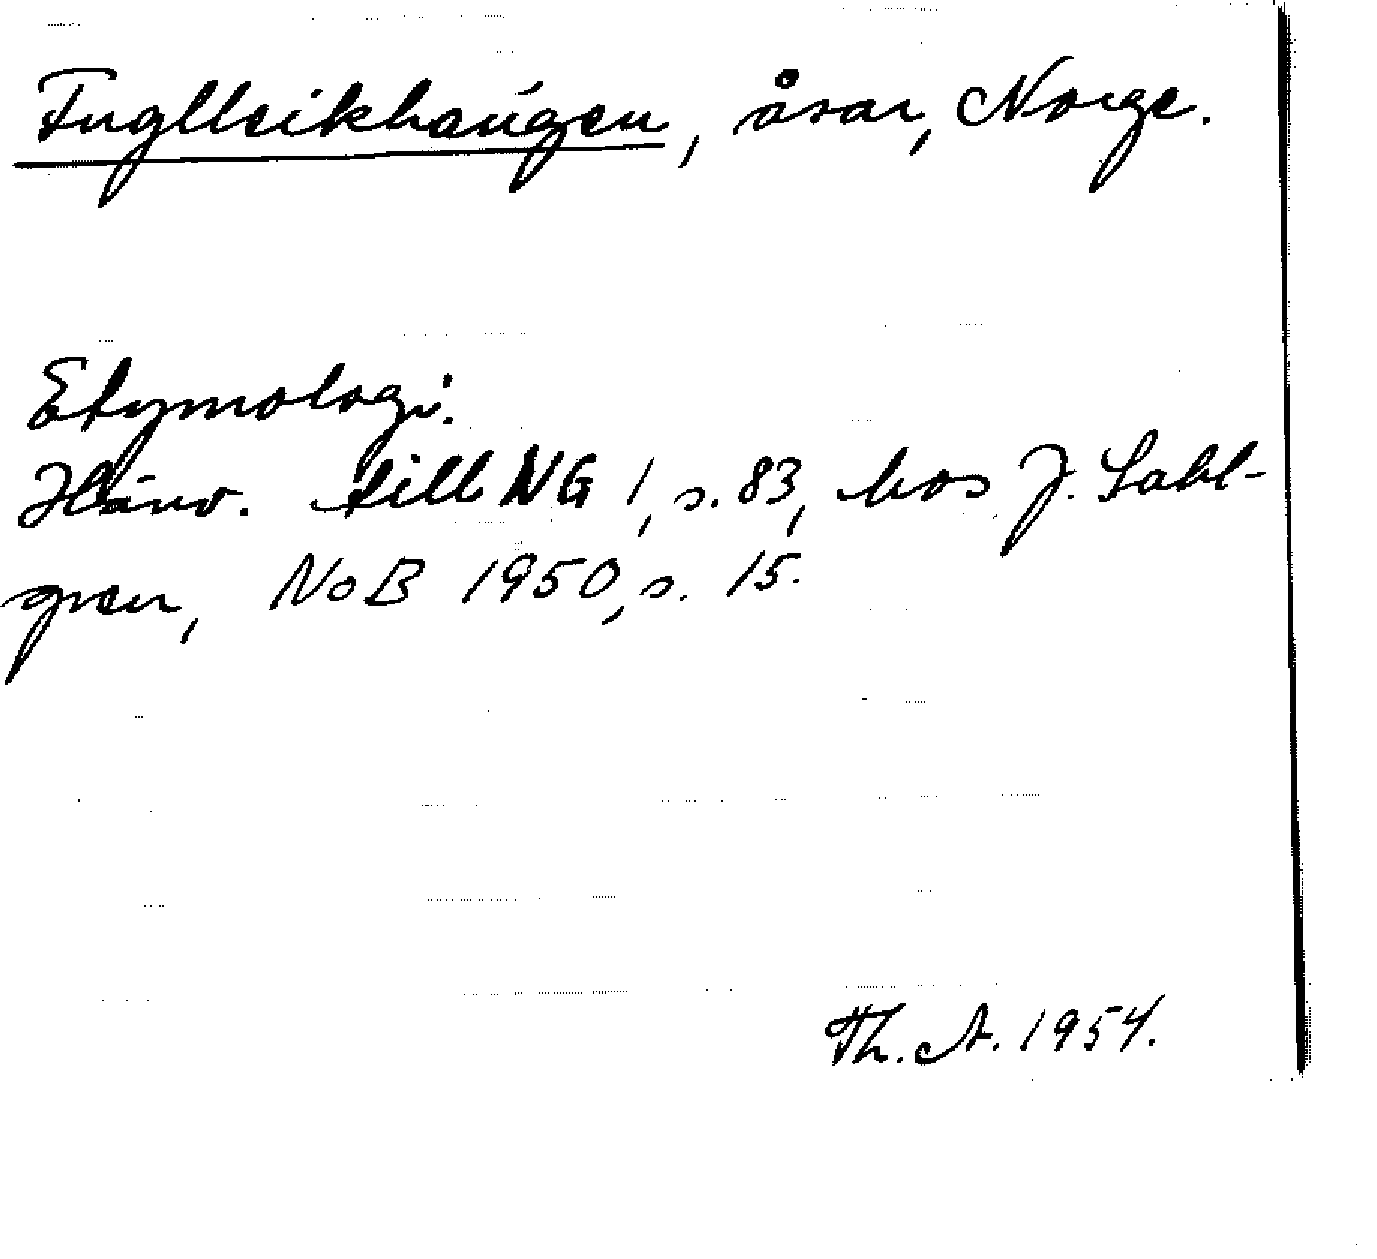 Fuglleikhaugen, åsar, Norge.
Etymologi.
Hänv. till NG 1, s. 83, hos J. Sahl-
gren, NoB 1950, s. 15.
Th. A. 1954.